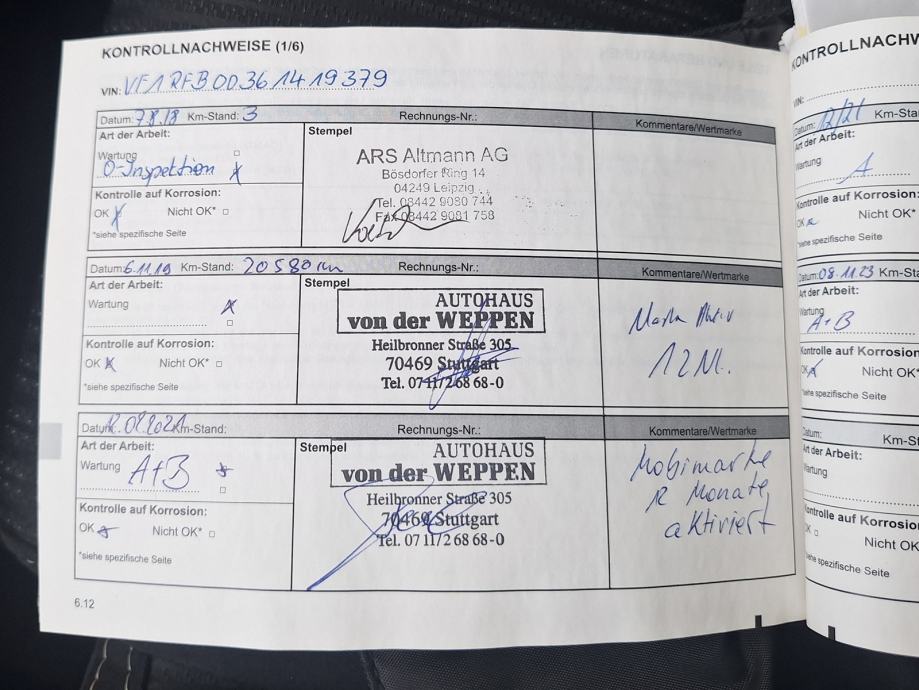 KONTROLLNACHWEISE (1/6)
VIN: VF1RFB00361419379
Datum: 7.8.18 Km-Stand: 3 Rechnungs-Nr.: Kommentare/Wertmarke
Art der Arbeit:
Wartung
0-Inspektion x
Kontrolle auf Korrosion:
OK x Nicht OK*
*siehe spezifische Seite
Stempel
ARS Altmann AG
Bösdorfer Ring 14
04249 Leipzig
Tel. 08442 9080 744
Fax 08442 9081 758
Datum: 6.11.19 Km-Stand: 20580 km Rechnungs-Nr.: Kommentare/Wertmarke
Art der Arbeit:
Wartung x
Kontrolle auf Korrosion:
OK x Nicht OK*
*siehe spezifische Seite
Stempel
AUTOHAUS
von der WEPPEN
Heilbronner Straße 305
70469 Stuttgart
Tel. 0711/2 68 68-0
12 M.
Datum: Km-Stand: Rechnungs-Nr.: Kommentare/Wertmarke
Art der Arbeit:
Wartung A+B x
Kontrolle auf Korrosion:
OK x Nicht OK*
*siehe spezifische Seite
Stempel
AUTOHAUS
von der WEPPEN
Heilbronner Straße 305
70469 Stuttgart
Tel. 07 11/2 68 68-0
Mobimarke
12 Monate
aktiviert
6.12
KONTROLLNACHW
VIN:
Datum: 12/21 Km-Sta
Art der Arbeit:
Wartung
A
Kontrolle auf Korrosion
OK x Nicht OK*
*siehe spezifische Seite
Datum: 08.11.23 Km-Sta
Art der Arbeit:
Wartung
A+B
Kontrolle auf Korrosion
OK x Nicht OK*
*siehe spezifische Seite
Datum: Km-St
Art der Arbeit:
Wartung
Kontrolle auf Korrosio
OK Nicht OK*
*siehe spezifische Seite